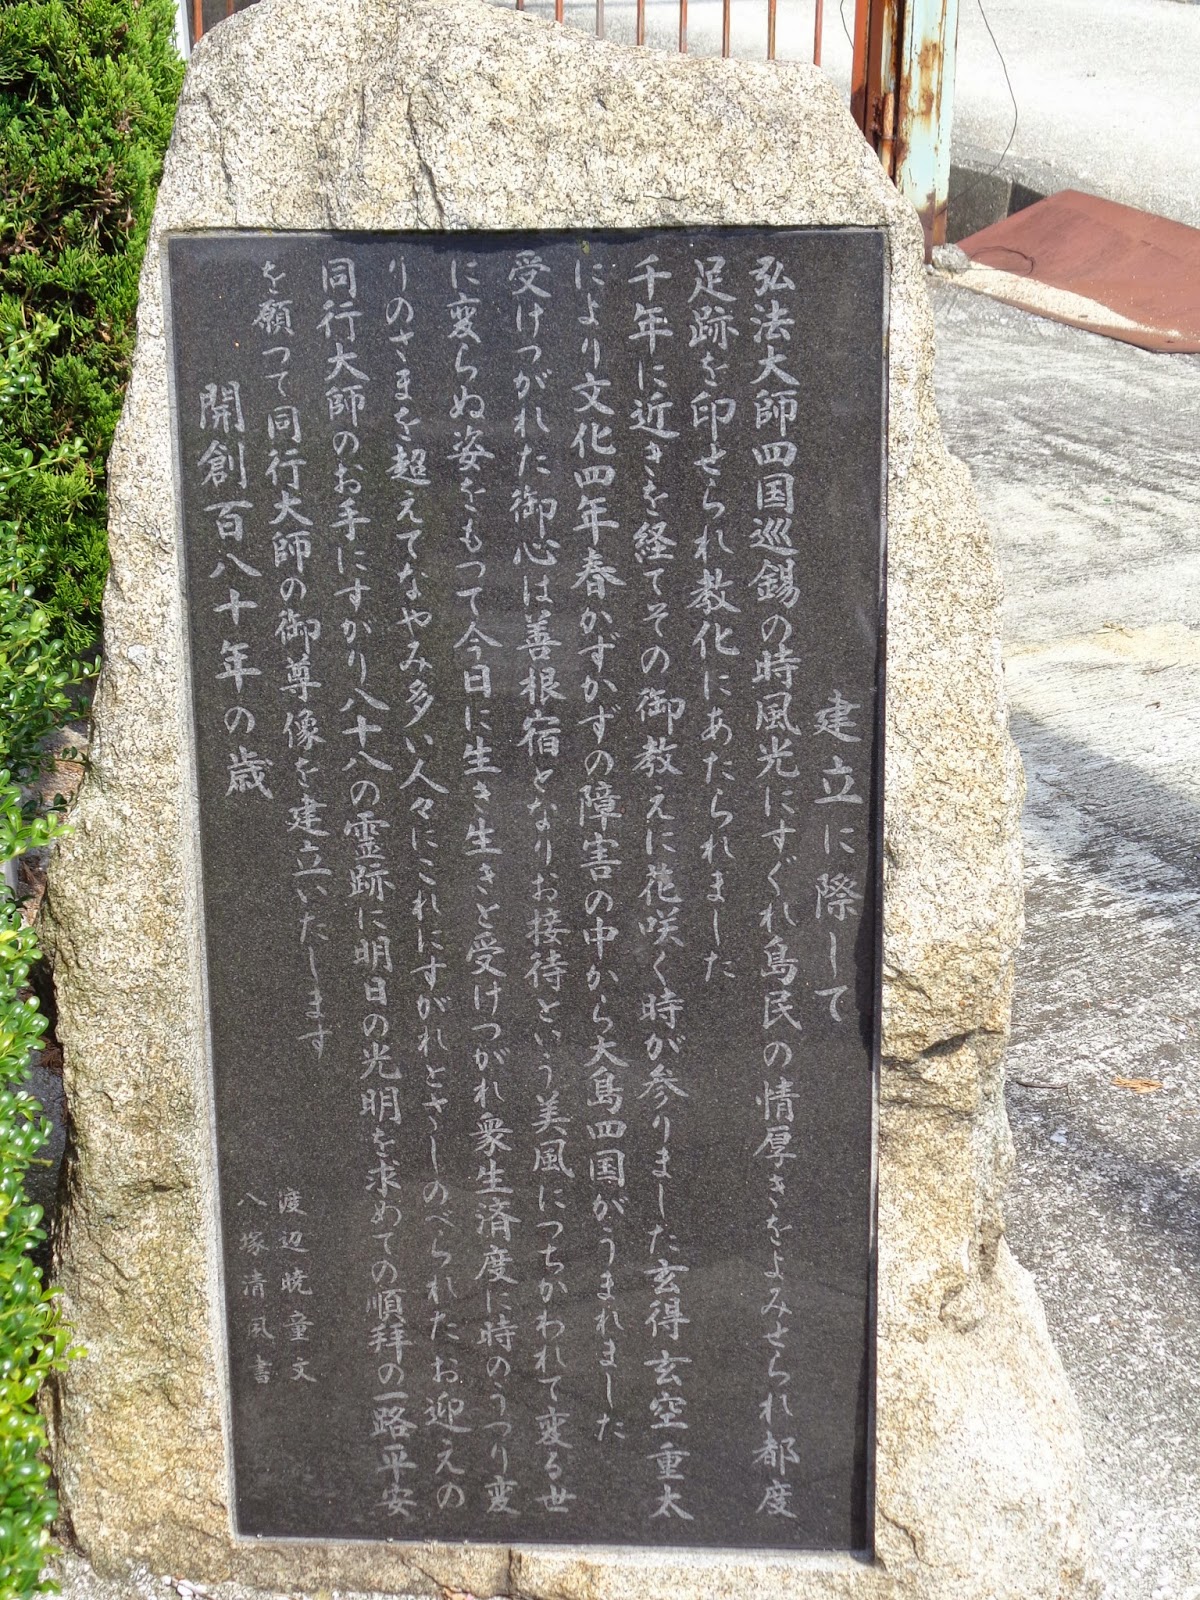 建立に際して
弘法大師四国巡錫の時風光にすぐれ島民の情厚きをよみせられ都度
足跡を印せられ教化にあたられました
千年に近きを経てその御教えに花咲く時が参りました玄得玄空重太
により文化四年春かずかずの障害の中から大島四国がうまれました
受けつがれた御心は善根宿となりお接待という美風につちかわれて変る世
に変らぬ姿をもって今日に生き生きと受けつがれ衆生済度に時のうつり変
りのさまを超えてなやみ多い人々にこれにすがれとさしのべられたお迎えの
同行大師のお手にすがり八十八の霊跡に明日の光明を求めての順拝の一路平安
を願って同行大師の御尊像を建立いたします
開創百八十年の歳
渡辺暁童文
八塚清風書